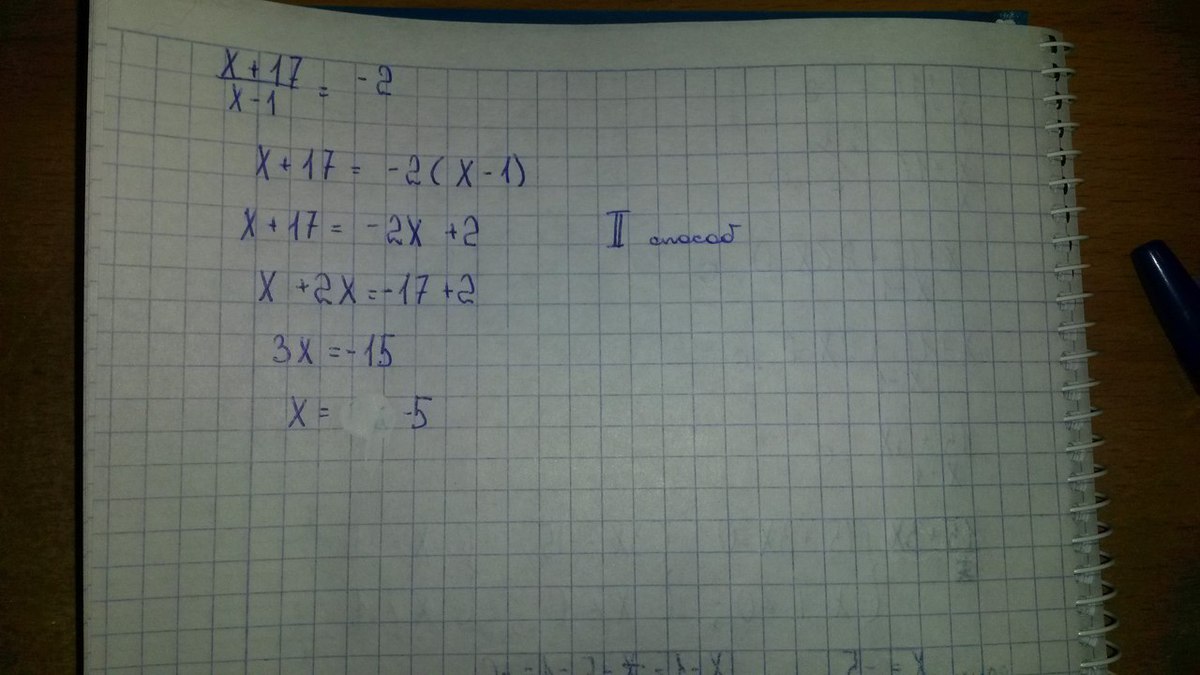 x + 17
x - 1 = - 2
x + 17 = - 2 ( x - 1 )
x + 17 = - 2x + 2
II способ
x + 2x = - 17 + 2
3x = - 15
x = - 5